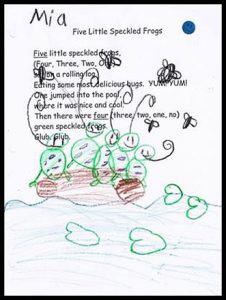 Mia
Five Little Speckled Frogs
Five little speckled frogs,
(Four, Three, Two, On
on a rolling log,
Eating some most delicious bugs. YUM! YUM!
One jumped into the pool,
where it was nice and cool.
Then there were four (three, two, one, no)
green speckled frogs.
Glub, Glub.